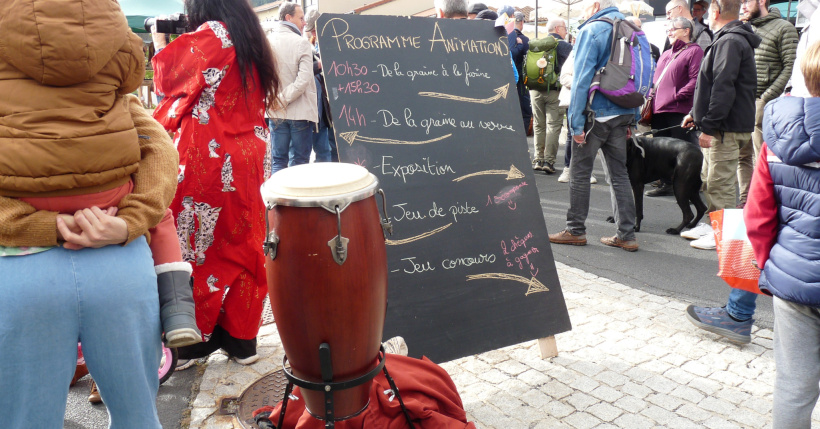 Programme Animations
10h30 - De la graine à la farine
+15h30
14h - De la graine au verre
Exposition
Jeu de piste
- Jeu concours
2 dragons
à gagner